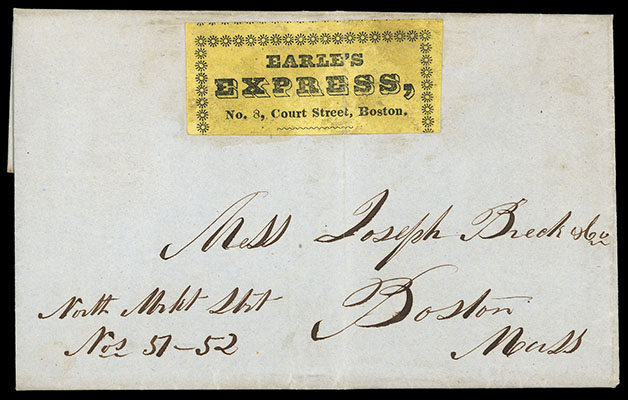 EARLE'S
EXPRESS,
No. 8, Court Street, Boston.
Mess Joseph Breck & Co
Boston
Mass
North Mrkt Strt
Nos 51-52